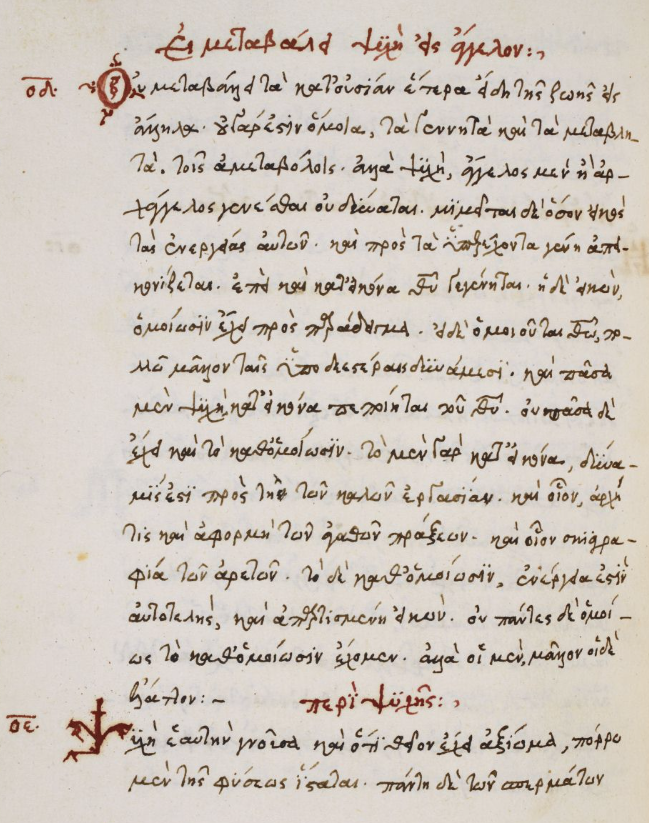 Εἰ μεταβάλλει ψυχὴ εἰς ἄγγελον:,
οδ. Οὐ μεταβάλλει τὰ κατ' οὐσίαν ἕτερα εἴδη τῆς ζωῆς εἰς
ἄλληλα· οὐ γάρ ἐστιν ὅμοια, τὰ γεννητὰ καὶ τὰ μεταβλη-
τὰ, τοῖς ἀμεταβόλοις· ἀλλὰ ψυχὴ, ἄγγελος μὲν ἢ ἀρ-
χάγγελος γενέσθαι οὐ δύναται· μιμεῖται δ' ὅσον εἰκὸς
τὰς ἐνεργείας αὐτῶν· καὶ πρὸς τὰ ὑπερέχοντα γένη ἀπει-
κονίζεται· ἐπεὶ καὶ κατ' εἰκόνα θῦ γεγένηται· ἡ δὲ εἰκὼν,
ὁμοίωσιν ἔχει πρὸς παράδειγμα· εἰ δὲ ὁμοιοῦται θῶ, πο-
λλῶ μᾶλλον ταῖς ὑποδεεστέραις δυνάμεσι· καὶ πᾶσα
μὲν ψυχὴ κατ' εἰκόνα πεποίηται τοῦ θῦ· οὐ πᾶσα δὲ
ἔχει καὶ τὸ καθ' ὁμοίωσιν· τὸ μὲν γὰρ κατ' εἰκόνα, δύνα-
μίς ἐστι πρὸς τὴν τῶν καλῶν ἐργασίαν· καὶ οἷον, ἀρχή
τις καὶ ἀφορμὴ τῶν ἀγαθῶν πράξεων· καὶ οἷον σκιαγρα-
φία τῶν ἀρετῶν· τὸ δὲ καθ' ὁμοίωσιν, ἐνέργειά ἐστιν
αὐτοτελὴς, καὶ ἀπηρτισμένη εἰκών· οὐ πάντες δὲ ὁμοί-
ως τὸ καθ' ὁμοίωσιν ἔχομεν· ἀλλὰ οἱ μὲν, μᾶλλον οἱ δὲ
ἔλαττον:- περὶ ψυχῆς:,
οε. Ψυχὴ ἑαυτὴν γνοῦσα καὶ ὅτι θεῖον ἔχει ἀξίωμα, πόρρω
μὲν τῆς φύσεως ἵσταται· πάντη δὲ τῶν σπερμάτων